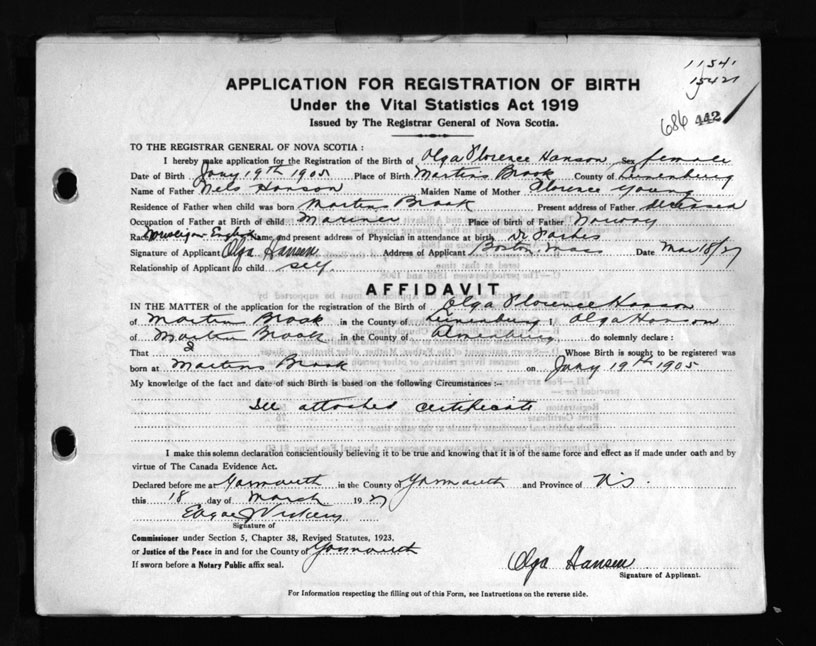 11541
15421
686 442
APPLICATION FOR REGISTRATION OF BIRTH
Under the Vital Statistics Act 1919
Issued by The Registrar General of Nova Scotia.
TO THE REGISTRAR GENERAL OF NOVA SCOTIA :
I hereby make application for the Registration of the Birth of Olga Florence Hanson Sex female
Date of Birth Jany 19th 1905 Place of Birth Martins Brook County of Lunenburg
Name of Father Nels Hanson Maiden Name of Mother Florence Young
Residence of Father when child was born Martins Brook Present address of Father deceased
Occupation of Father at Birth of child Mariner Place of birth of Father Norway
Race Norwegian English Name and present address of Physician in attendance at birth Dr Forbes
Signature of Applicant Olga Hansen Address of Applicant Boston Mass Date Mar 18/27
Relationship of Applicant to child self
AFFIDAVIT
IN THE MATTER of the application for the registration of Birth of Olga Florence Hanson
of Martins Brook in the County of Lunenburg I Olga Hanson
of Martins Brook in the County of Lunenburg do solemnly declare :
That I Whose Birth is sought to be registered was
born at Martins Brook on Jany 19th 1905
My knowledge of the fact and date of such Birth is based on the following Circumstances :-
See attached certificate
I make this solemn declaration conscientiously believing it to be true and knowing that it is of the same force and effect as if made under oath and by
virtue of The Canada Evidence Act.
Declared before me at Yarmouth in the County of Yarmouth and Province of N.S.
this 18 day of March 1927
Edgar J Vickery
Signature of
Commissioner under Section 5, Chapter 38, Revised Statutes, 1923,
or Justice of the Peace in and for the County of Yarmouth
If sworn before a Notary Public affix seal.
Olga Hansen
Signature of Applicant.
For Information respecting the filling out of this Form, see Instructions on the reverse side.